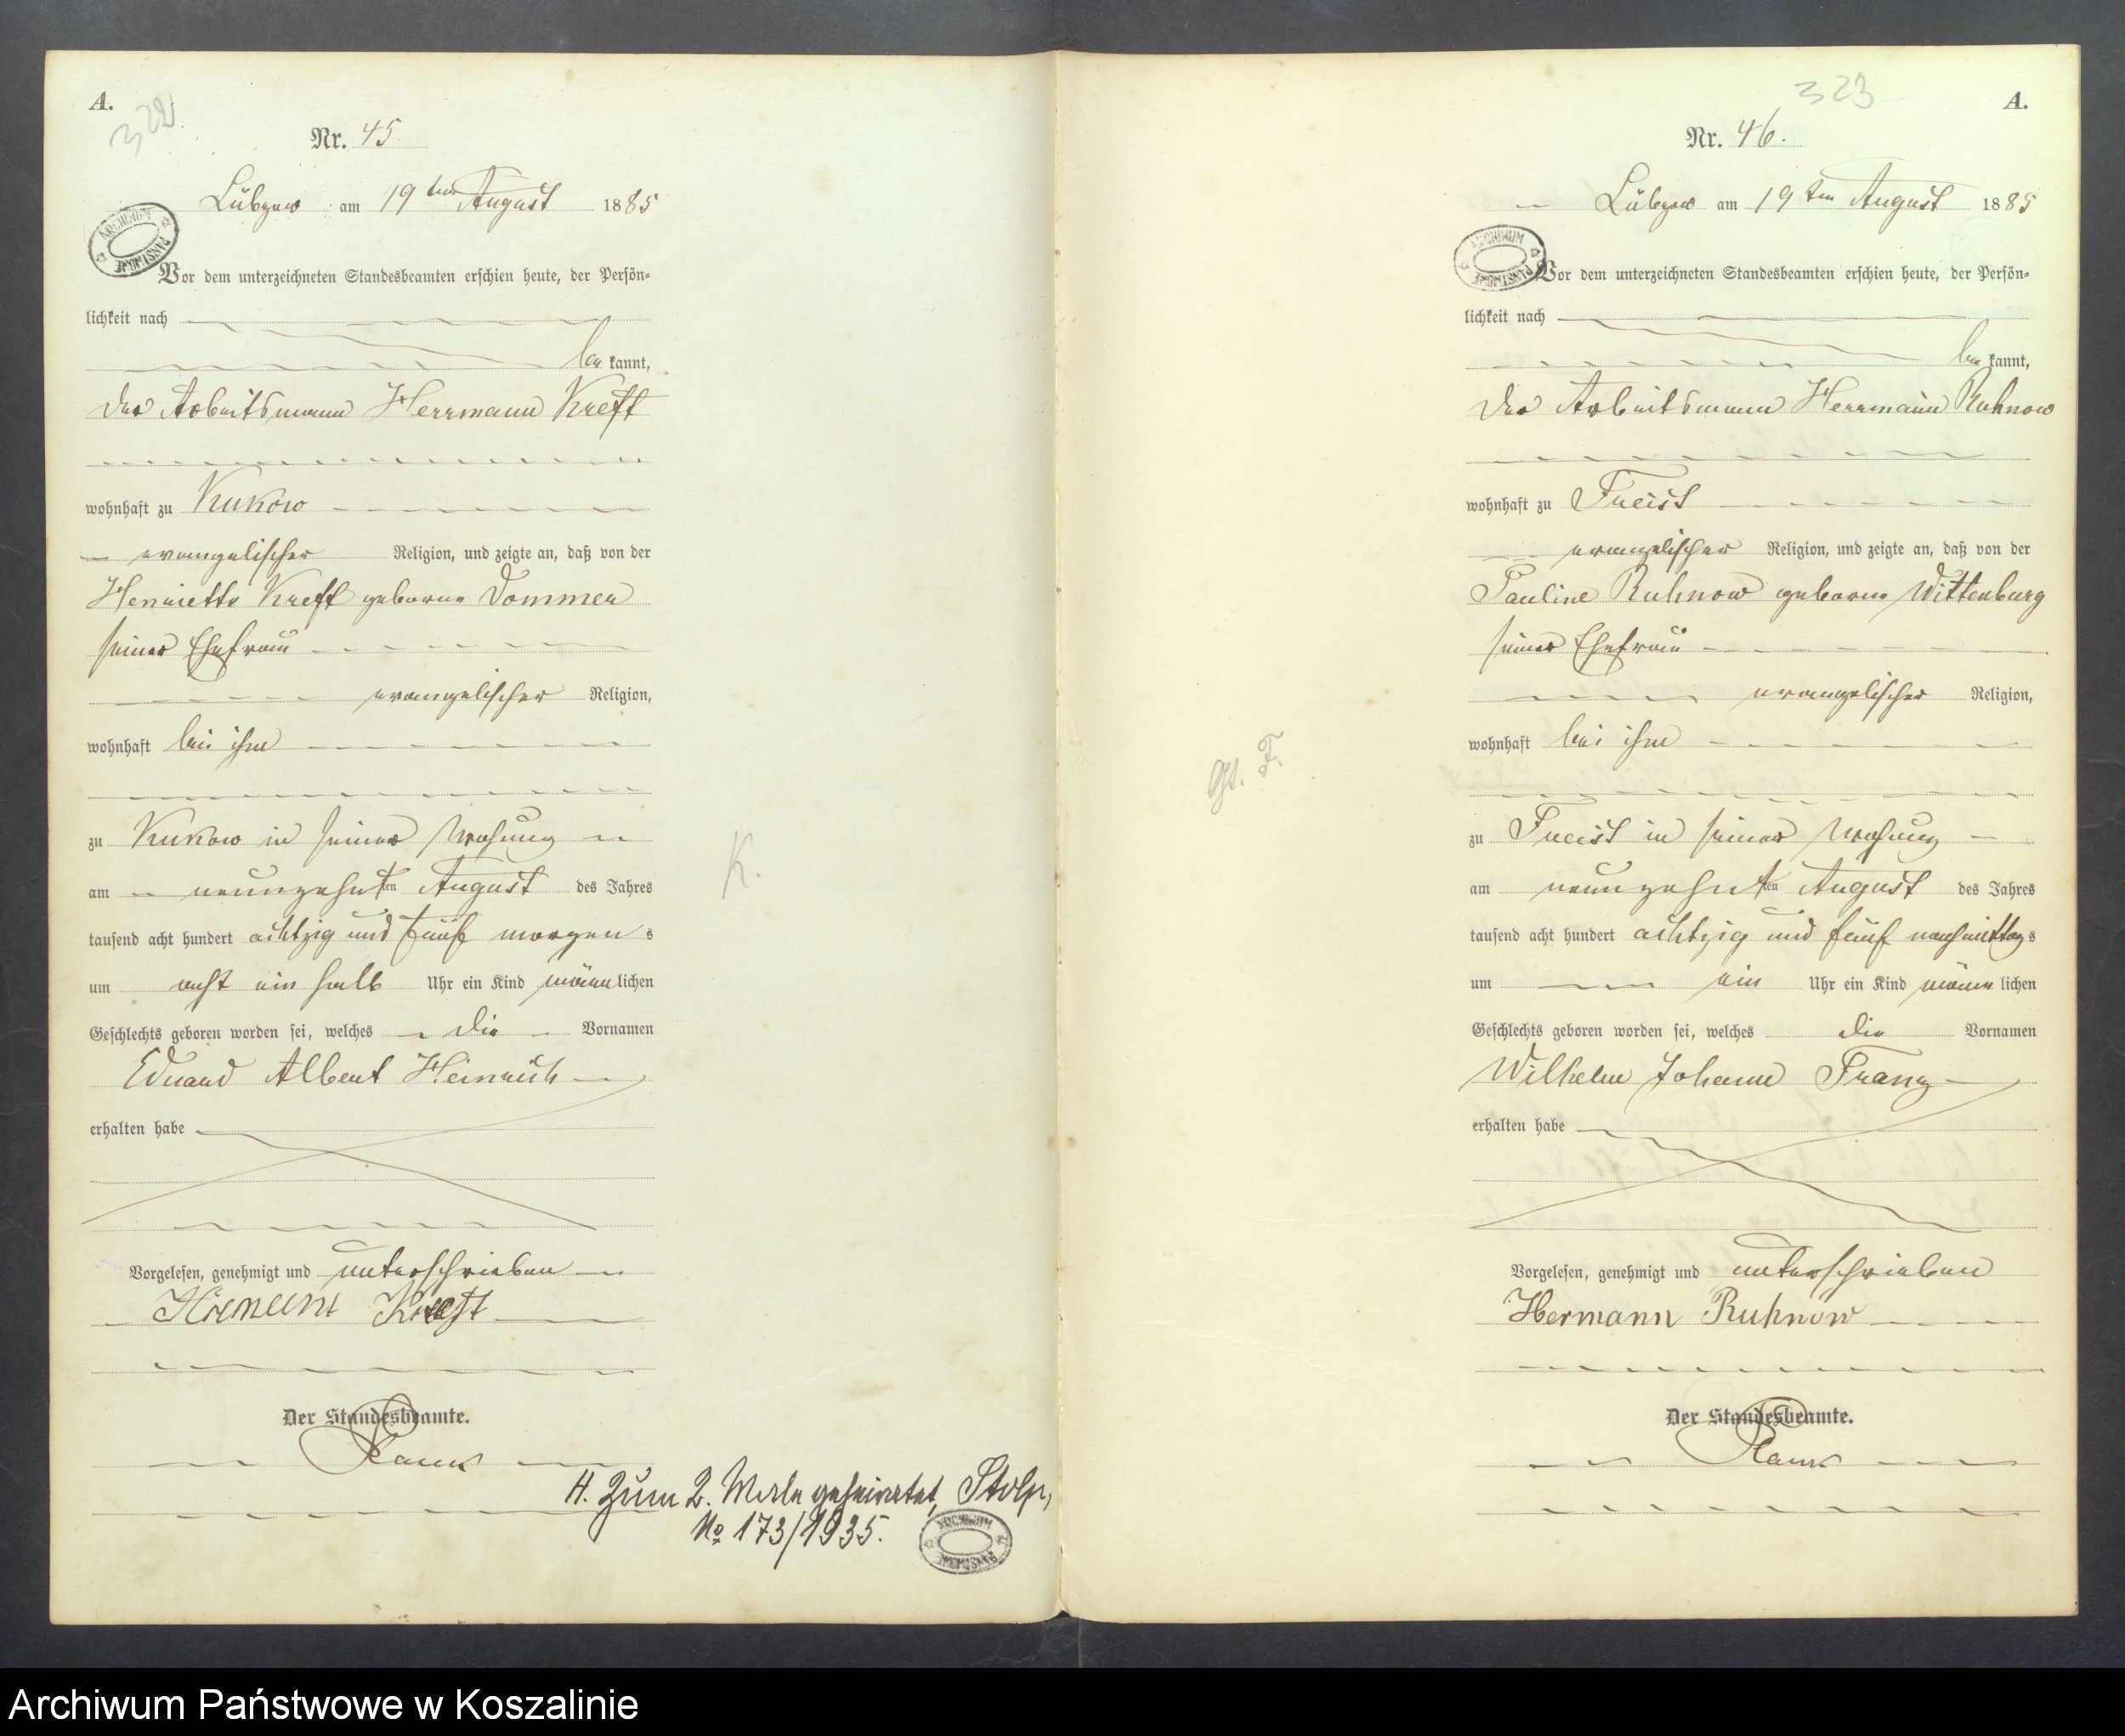 A.
322
Nr. 45.
Lübzow am 19ten August 1885
ARCHIWUM PAŃSTWOWE
Vor dem unterzeichneten Standesbeamten erschien heute, der Persön-
lichkeit nach
bekannt,
der Arbeitsmann Herrmann Kreft
wohnhaft zu Kukow
evangelischer Religion, und zeigte an, daß von der
Henriette Kreft geborne Dommer
seiner Ehefrau
evangelischer Religion,
wohnhaft bei ihm
zu Kukow in seiner Wohnung
am neunzehnten August des Jahres
tausend acht hundert achtzig und fünf morgens
um acht ein halb Uhr ein Kind männlichen
Geschlechts geboren worden sei, welches die Vornamen
Eduard Albert Heinrich
erhalten habe
Vorgelesen, genehmigt und unterschrieben
Kreft
Der Standesbeamte.
K.
H. Zum 2. Male geheiratet, Stolp,
No 173/1935.
ARCHIWUM PAŃSTWOWE
323
A.
Nr. 46.
Lübzow am 19ten August 1885
ARCHIWUM PAŃSTWOWE
Vor dem unterzeichneten Standesbeamten erschien heute, der Persön-
lichkeit nach
bekannt,
der Arbeitsmann Herrmann Ruhnow
wohnhaft zu Freist
evangelischer Religion, und zeigte an, daß von der
Pauline Ruhnow geborne Wittenburg
seiner Ehefrau
evangelischer Religion,
wohnhaft bei ihm
zu Freist in seiner Wohnung
am neunzehnten August des Jahres
tausend acht hundert achtzig und fünf nachmittags
um ein Uhr ein Kind männlichen
Geschlechts geboren worden sei, welches die Vornamen
Wilhelm Johann Franz
erhalten habe
Vorgelesen, genehmigt und unterschrieben
Hermann Ruhnow
Der Standesbeamte.
Archiwum Państwowe w Koszalinie